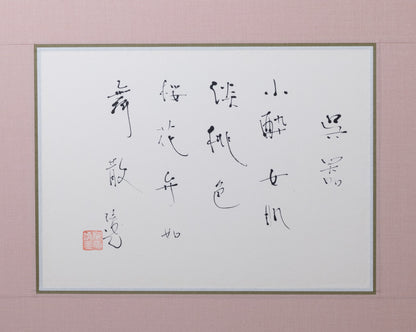 呉器
小酔女肌
淡桃色
桜花弁如
舞散